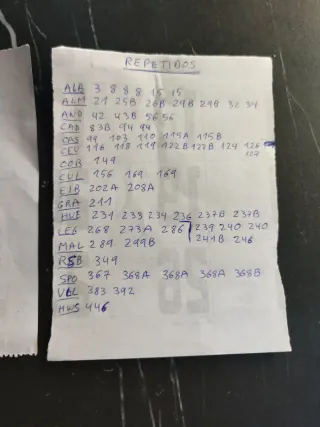 REPETIDOS
ALB 3 8 8 8 15 15
ALM 21 25B 26B 29B 29B 32 34
AND 42 43B 56 56
CAD 83B 94 94
CAS 99 103 110 115A 115B
CEV 116 118 119 122B 122B 124 126
127
COR 149
CUL 156 169 169
EIB 202A 208A
GRA 211
HUE 231 233 234 236 237B 237B
239 240 240
LEG 268 273A 286
241B 246
MAL 289 299B
RSB 349
SPO 367 368A 368A 368A 368B
VLL 383 392
HWS 446